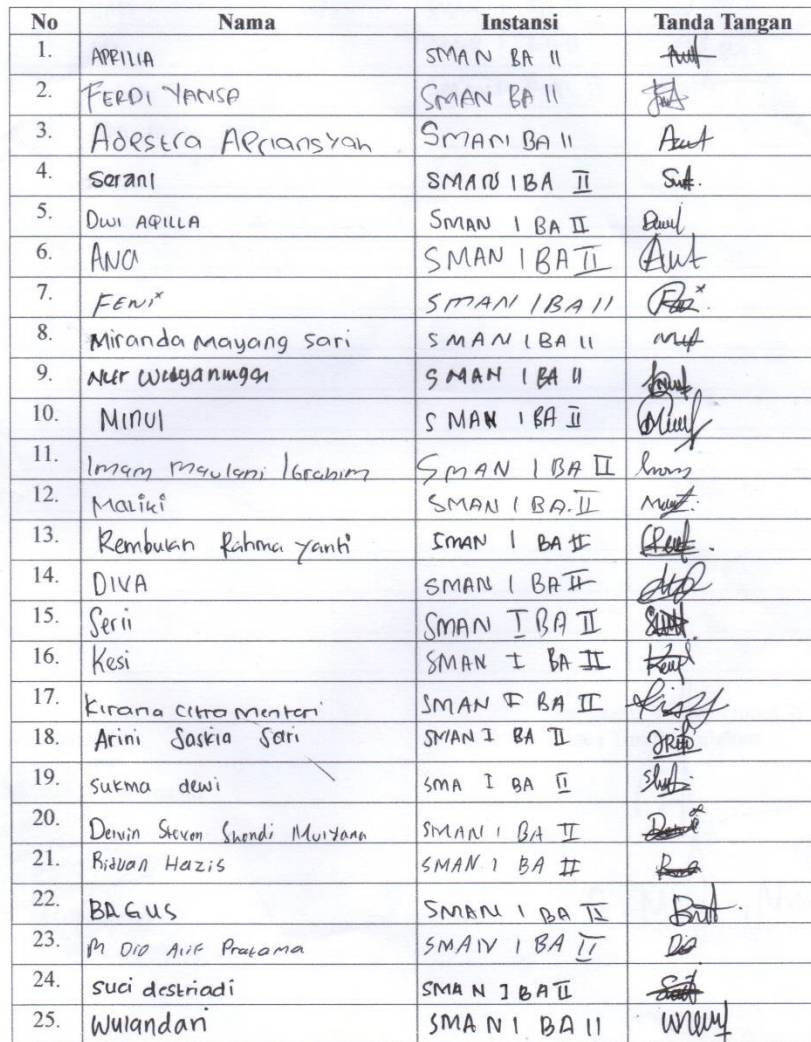 No Nama Instansi Tanda Tangan
1. APRILIA SMAN BA II
2. FERDI YANSA SMAN BA II
3. Adestra Apriansyah SMAN BA II
4. Serani SMAN 1 BA II
5. DWI AQILLA SMAN 1 BA II
6. ANA SMAN 1 BA II
7. FENI SMAN 1 BA II
8. Miranda Mayang Sari SMAN 1 BA II
9. Nur Widyaningsi SMAN 1 BA II
10. Minul SMAN 1 BA II
11. Imam Maulani Ibrahim SMAN 1 BA II
12. Maliki SMAN 1 BA. II
13. Rembulan Rahma Yanti SMAN 1 BA II
14. DIVA SMAN 1 BA II
15. Serii SMAN I BA II
16. Kesi SMAN I BA II
17. Kirana Citra Mentari SMAN I BA II
18. Arini Saskia Sari SMAN I BA II
19. Sukma dewi SMA I BA II
20. Steven Shendi Mulyana SMAN 1 BA II
21. Riduan Hazis SMAN 1 BA II
22. BAGUS SMAN 1 BA II
23. M DIO Alif Pratama SMAN 1 BA II
24. Suci destriadi SMAN I BA II
25. Wulandari SMAN 1 BA II